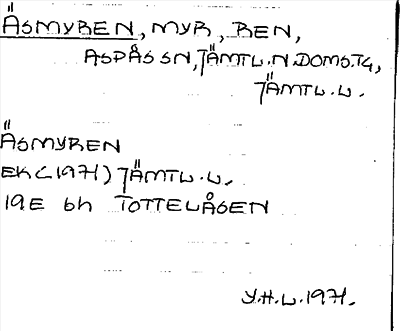 ÄSMYREN, MYR, REN,
ASPÅS SN, JÄMTL.N.DOMS.TG,
JÄMTL.L.
ÄSMYREN
EK(1971) JÄMTL.L.
19E 6h TOTTELÅSEN
Y.H.L.1971.